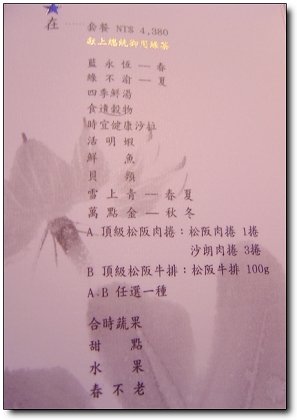 在 ······ 套餐 NT$ 4,380
獻上總統御用綠茶
藍永恆——春
綠不渝——夏
四季鮮湯
食遺穀物
時宜健康沙拉
活明蝦
鮮魚
貝類
雪上青——春夏
萬點金——秋冬
A 頂級松阪肉捲：松阪肉捲 1捲
沙朗肉捲 3捲
B 頂級松阪牛排：松阪牛排 100g
A.B 任選一種
合時蔬果
甜點
水果
春不老